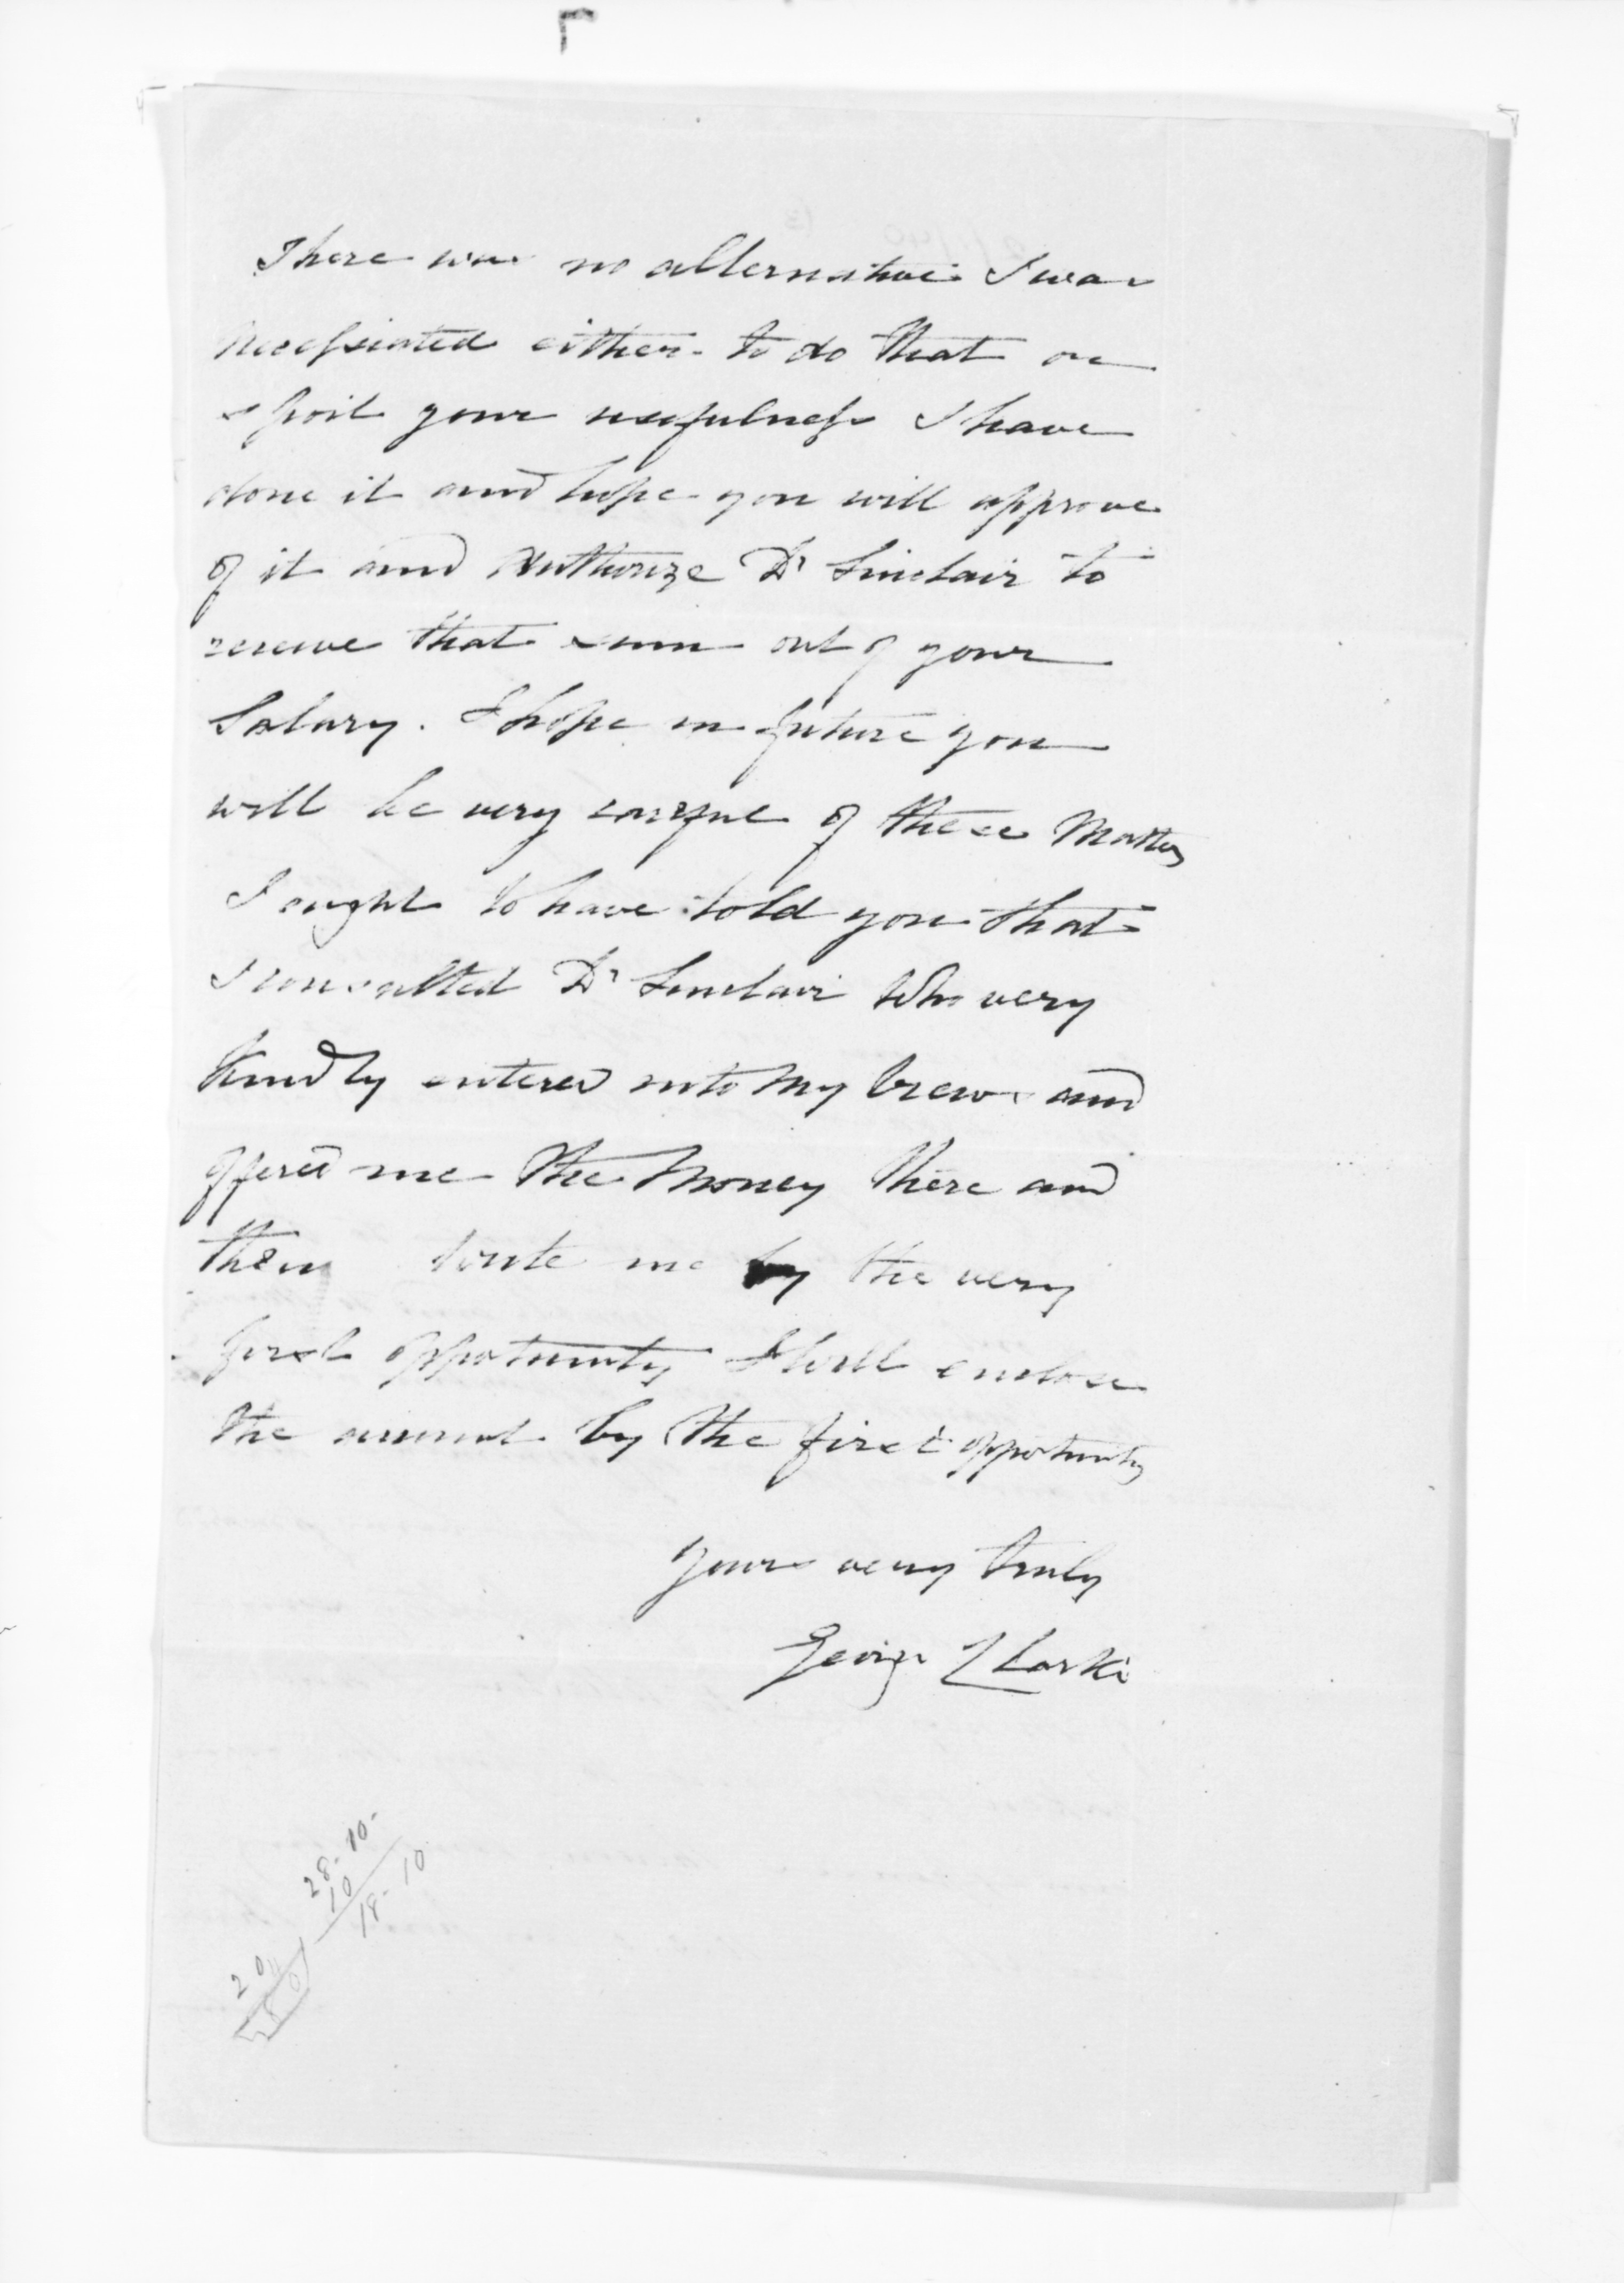 There was no alternative I was
necessiated either to do that or
spoil your usefulness I have
done it and hope you will approve
of it and Authorize Dr Sinclair to
receive that sum out of your
Salary. I hope in future you
will be very careful of these Matters
I ought to have told you that
I consulted Dr Sinclair who very
kindly entered into my views and
offered me the money there and
then write me by the very
first oppotunity I will enclose
the amount by the first oppotunity
yours very truly
George Clarke
28-10-
10
18-10
20